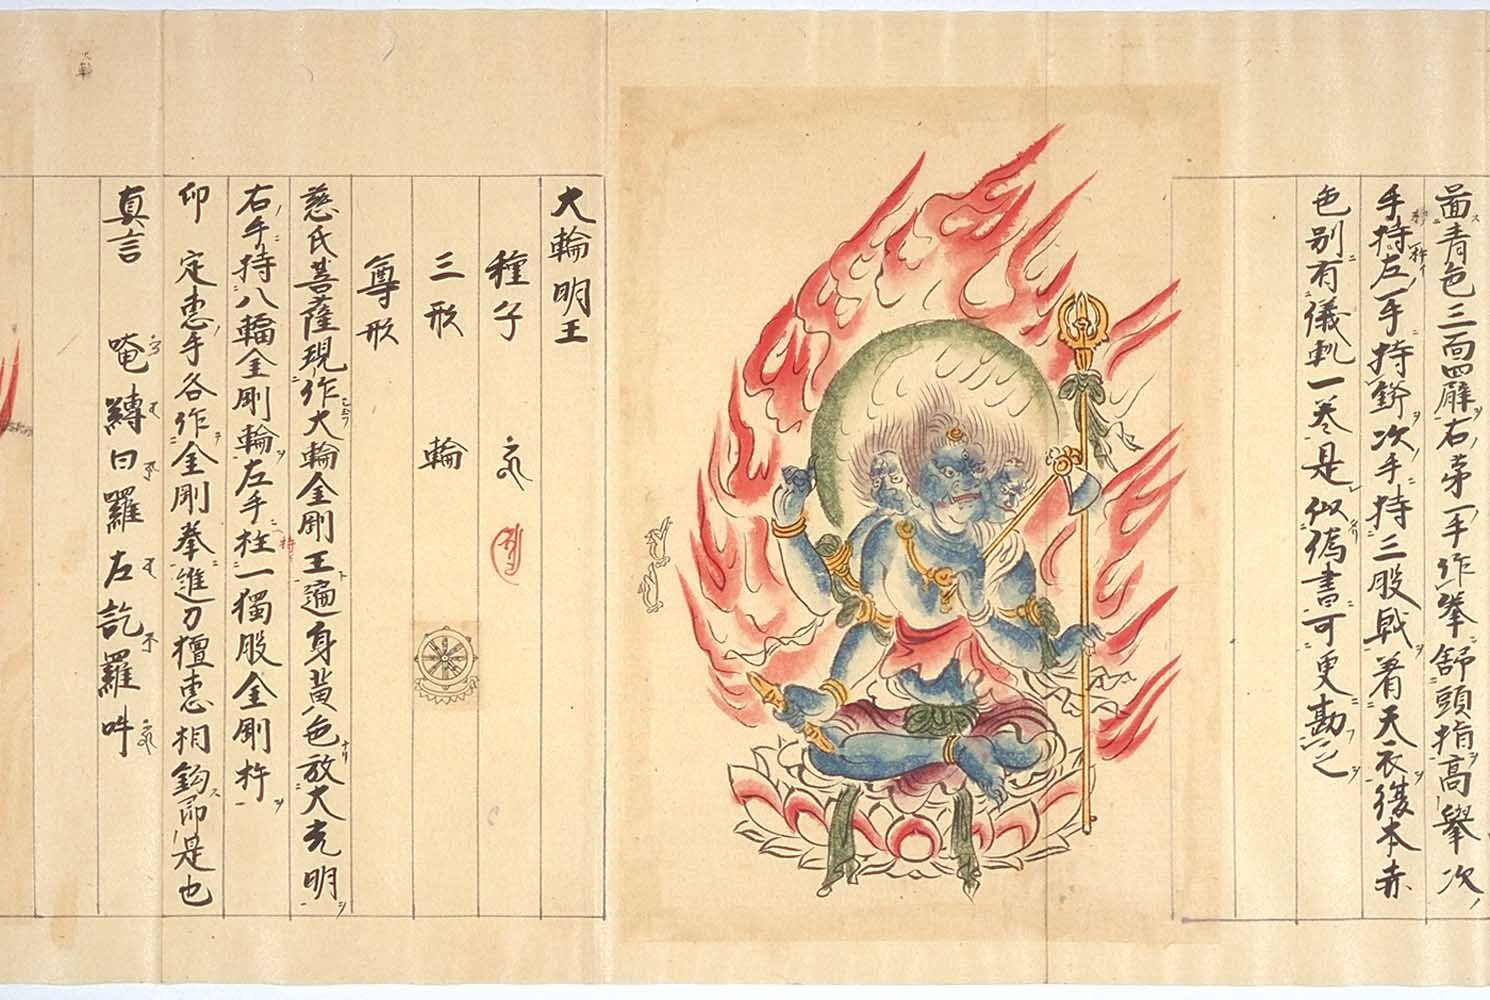 面青色三面四臂右第一手作拳舒頭指高擧次
手持杵左一手持鈴次手持三股戟着天衣復本赤
色別有儀軌一巻是似偽書可更勘之
大輪明王
種子
三形 輪
尊形
慈氏菩薩現作大輪金剛王遍身黄色放大光明
右手持八輻金剛輪左手柱一獨股金剛杵
印 定恵手各作金剛拳進力檀恵相鈎即是也
真言 唵縳曰羅左訖羅吽